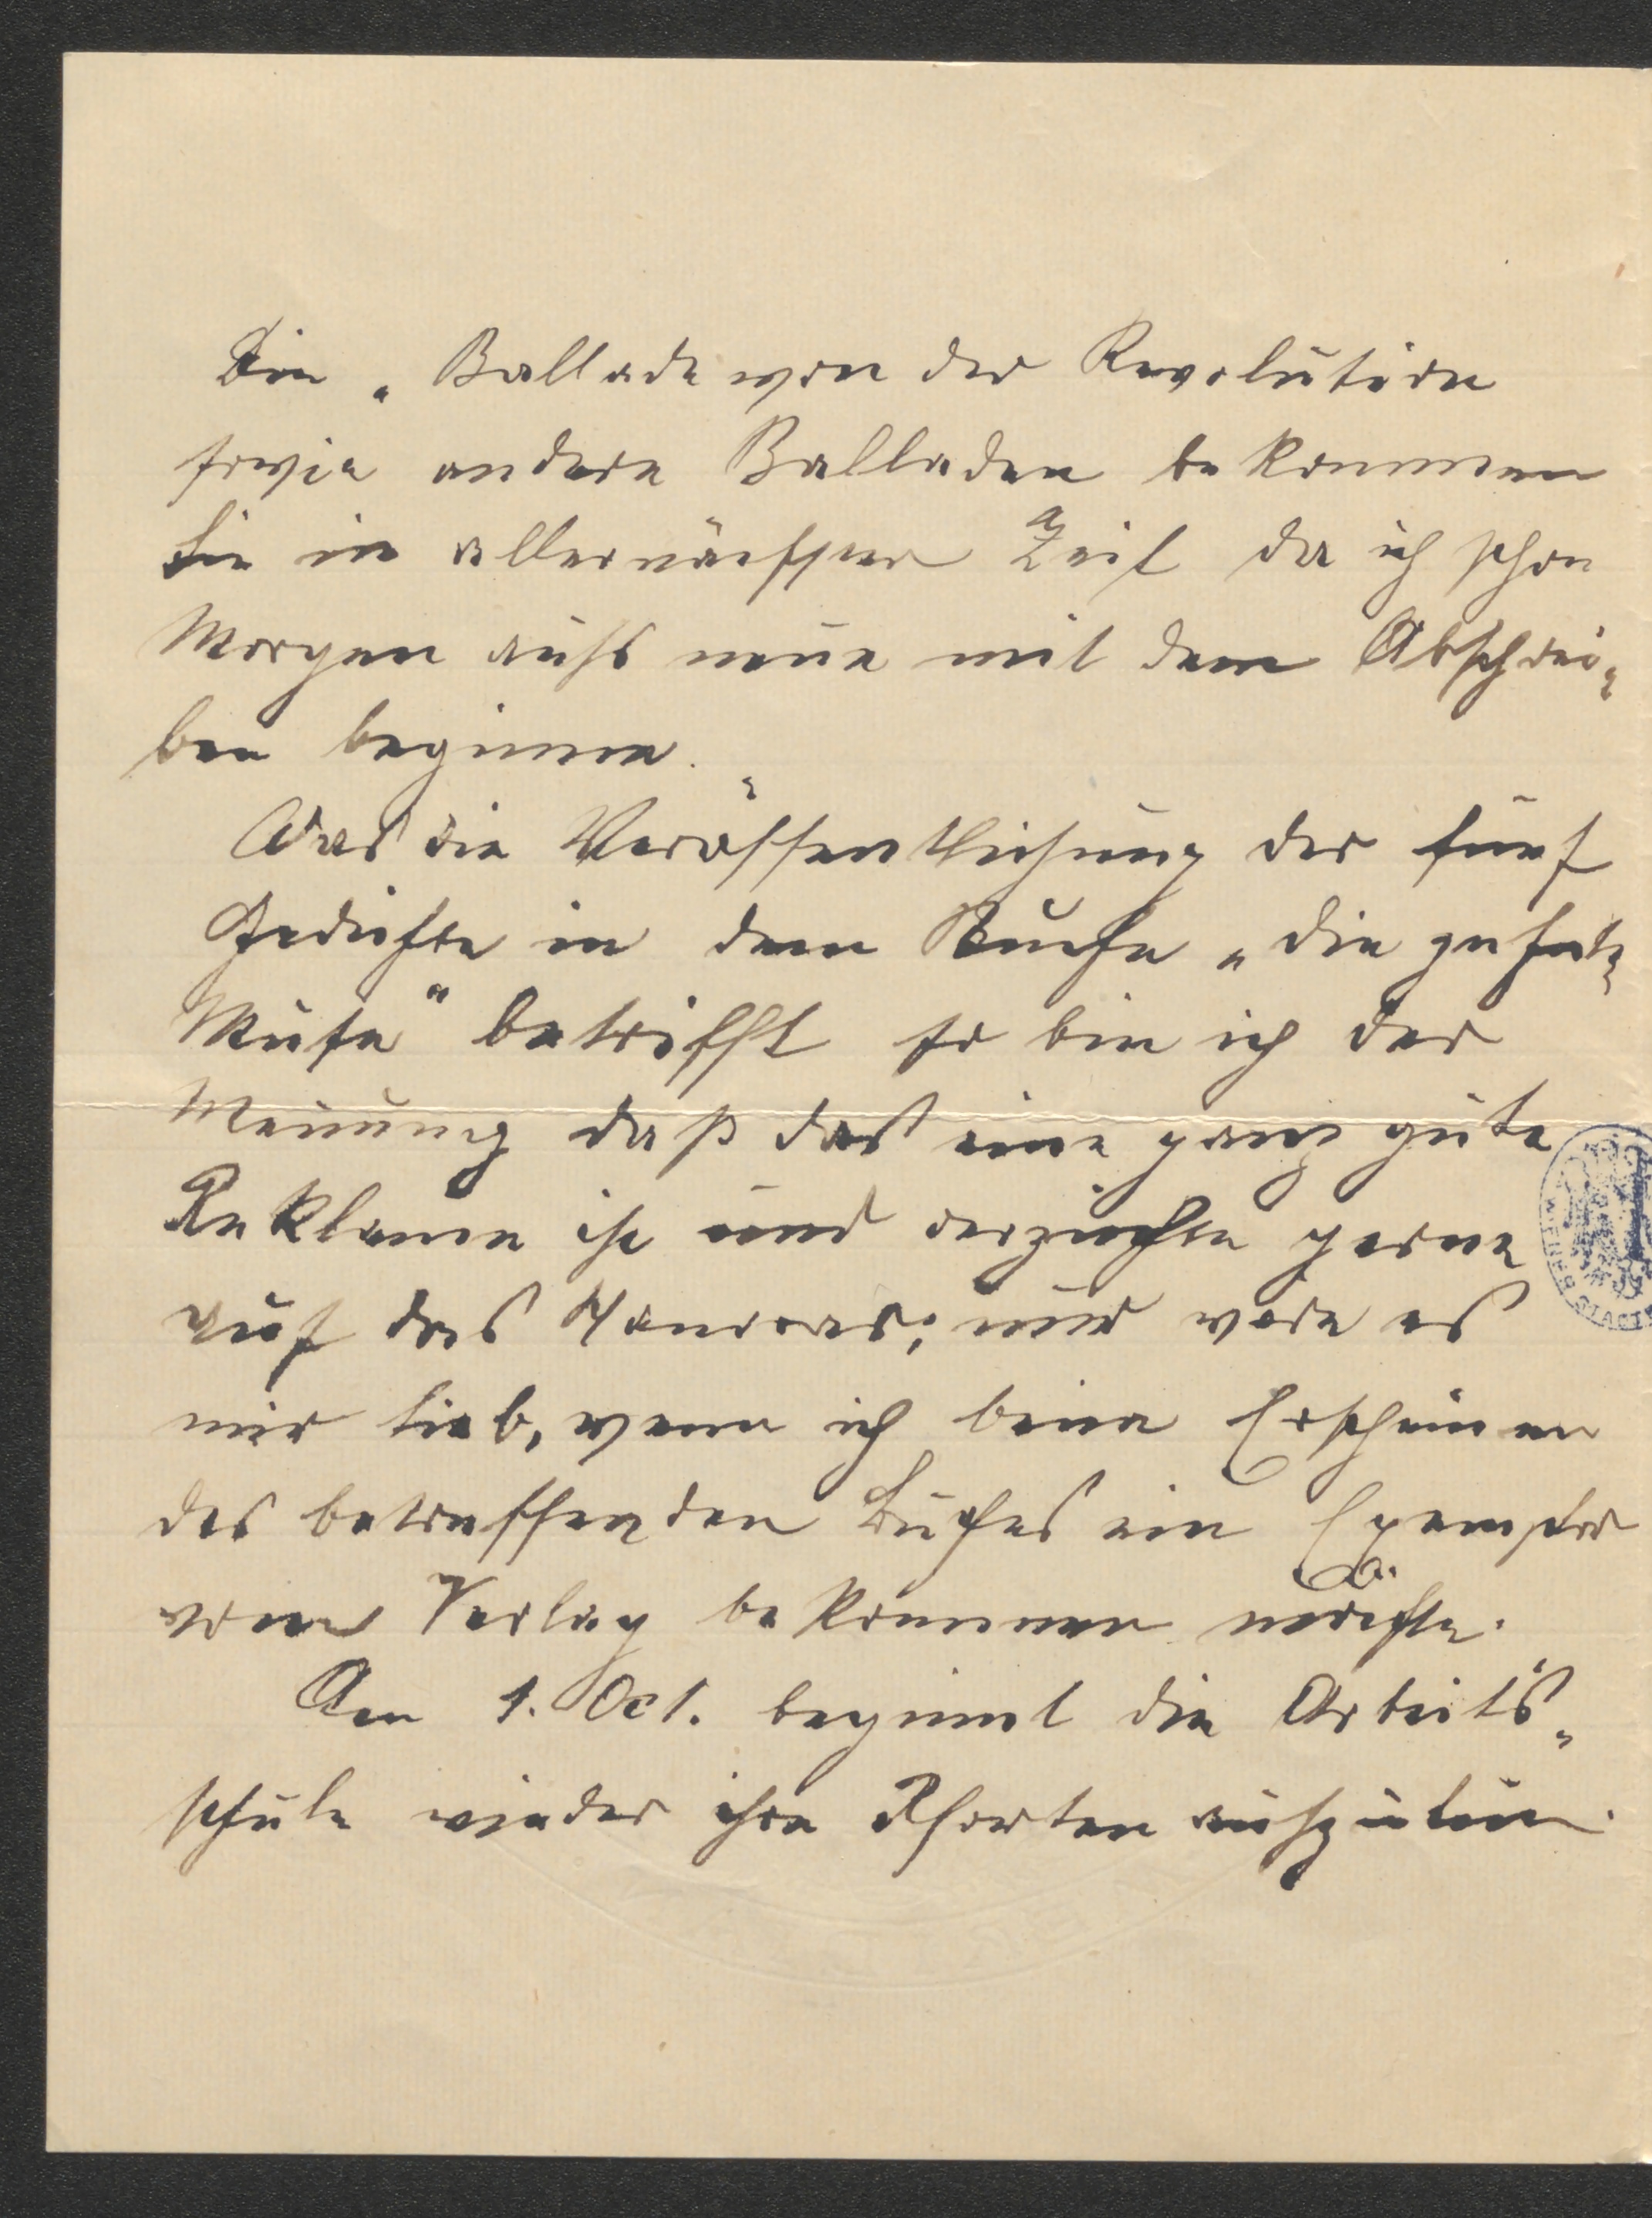 Die „Ballade von der Revolution
sowie andere Balladen bekommen
Sie in allernächster Zeit da ich schon
Morgen aufs neue mit dem Abschrei-
ben beginne.
Was die Veröffentlichung der fünf
Gedichte in dem Buche „die
Muse“ betrifft so bin ich der
Meinung daß das eine ganz gute
Reklame ist und verzichte gerne
auf das Honorar; nur wäre es
mir lieb, wenn ich beim Erscheinen
des betreffenden Buches ein Exemplar
vom Verlag bekommen möchte.
Am 1. Oct. beginnt die Arbeits-
schule wieder ihre Pforten aufzutun.